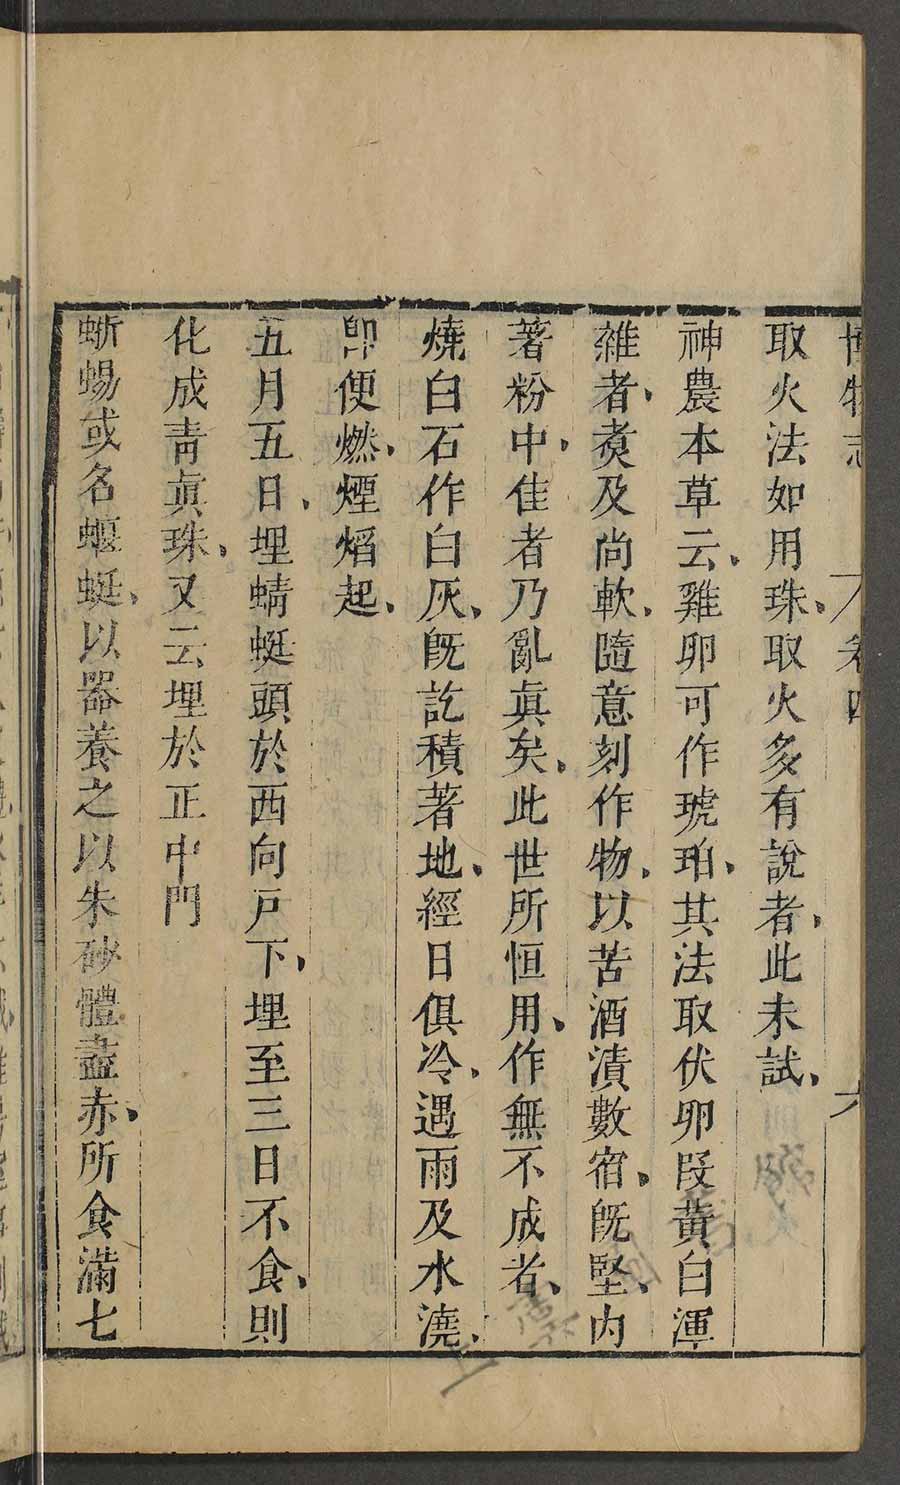 博物志 卷四 六
取火法如用珠、取火多有說者、此未試、
神農本草云、雞卵可作琥珀、其法取伏卵段黃白渾
雜者、煑及尚軟、隨意刻作物、以苦酒漬數宿、旣堅、內
著粉中、佳者乃亂眞矣、此世所恒用、作無不成者、
燒白石作白灰、旣訖積著地、經日俱冷、遇雨及水澆、
卽便燃、煙焰起、
五月五日、埋蜻蜓頭於西向戸下、埋至三日不食、則
化成靑眞珠、又云埋於正中門
蜥蜴或名蝘蜓、以器養之以朱砂體盡赤、所食滿七